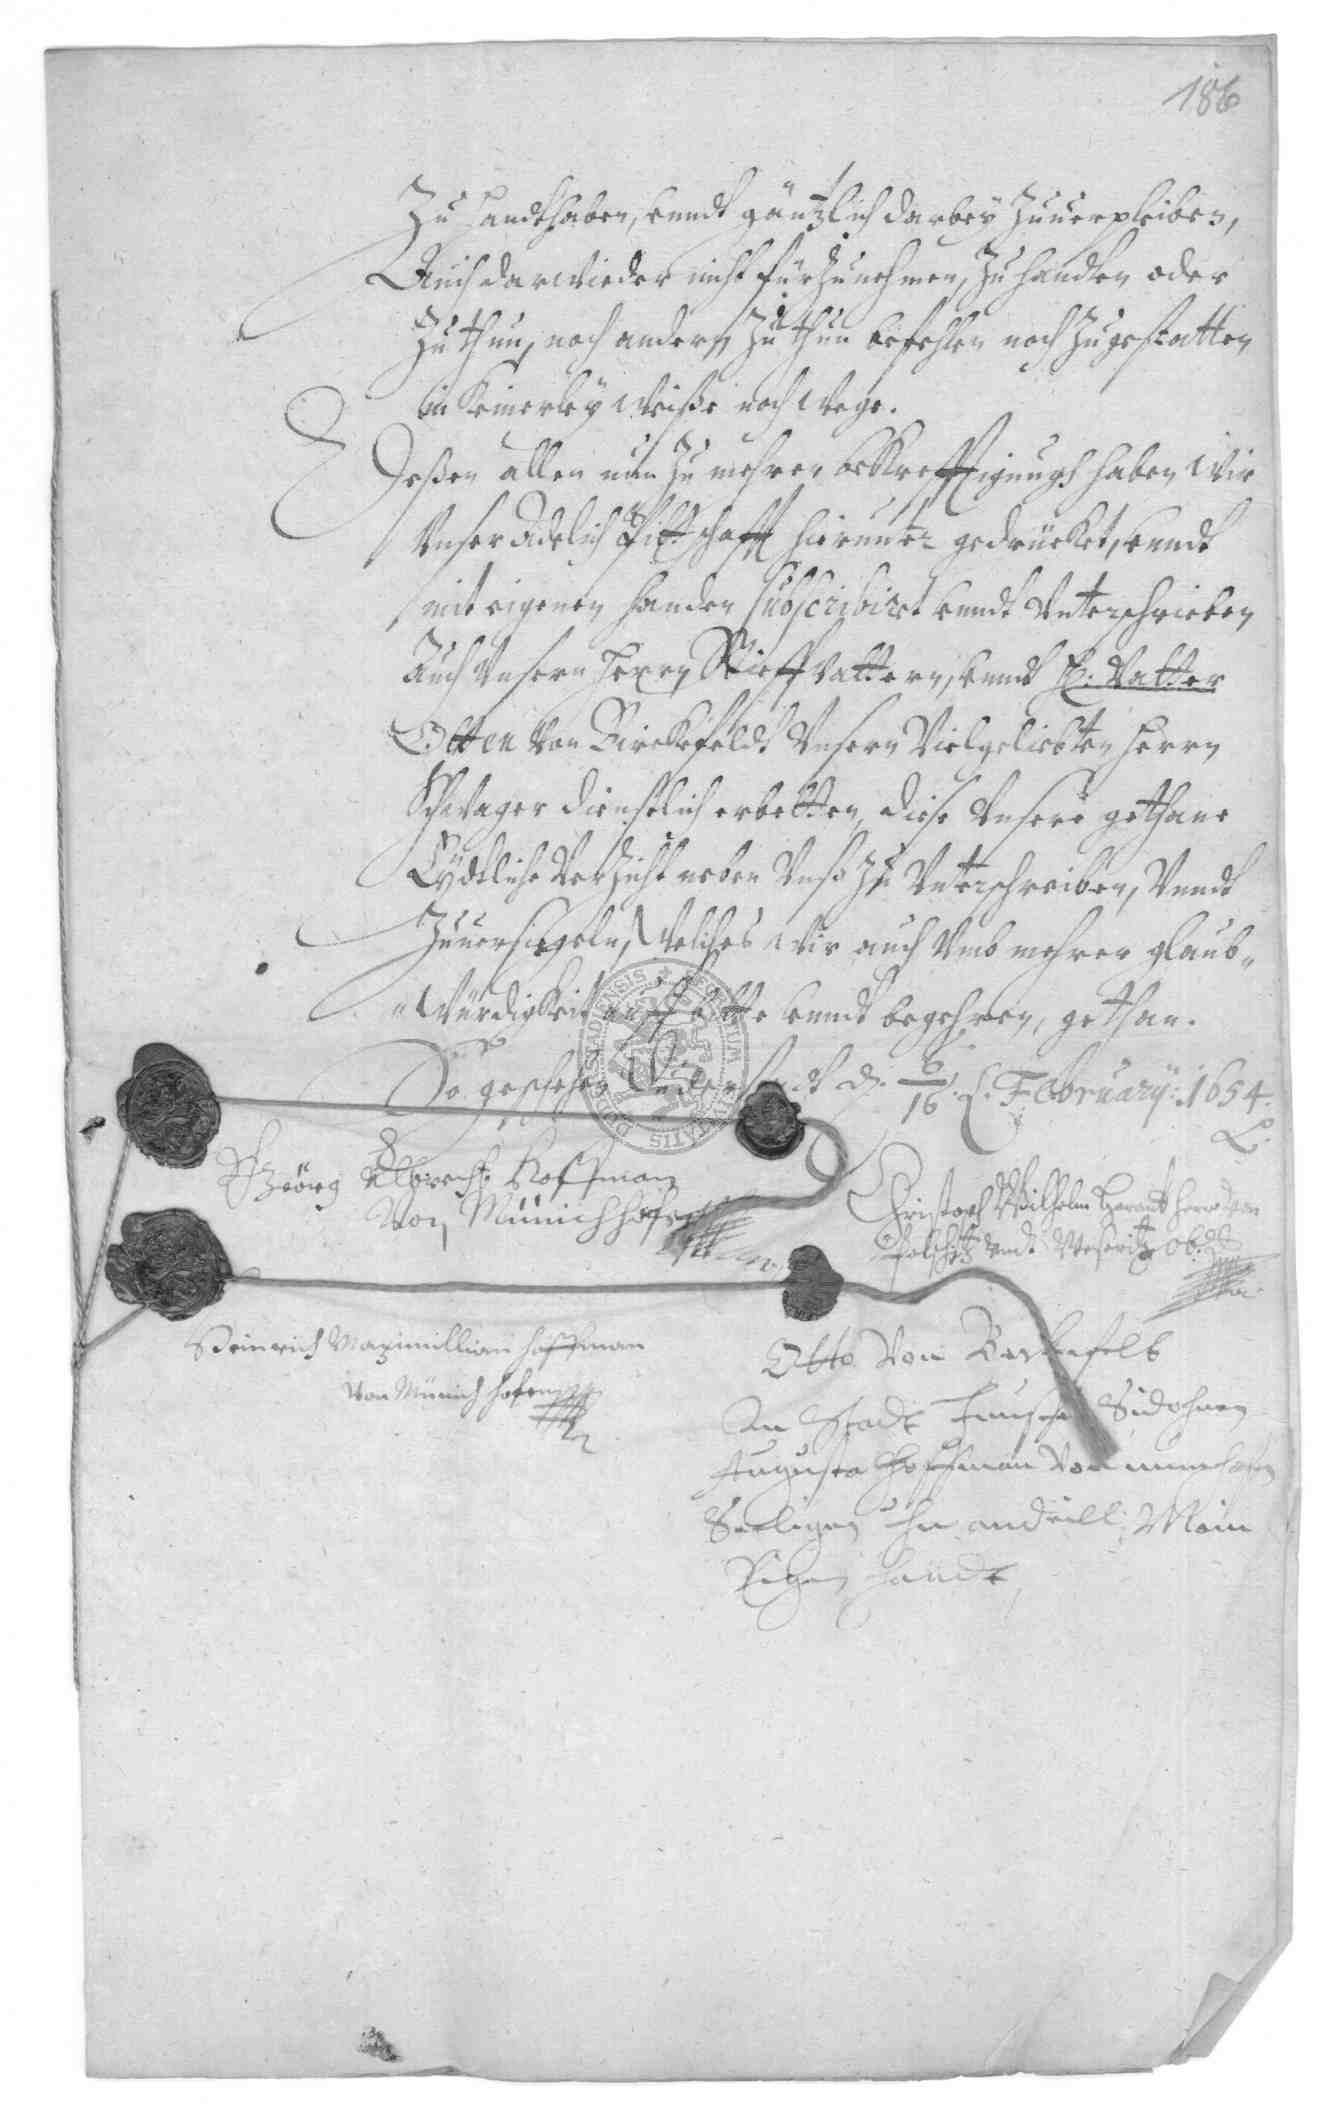 186
Zu handthaben, vnndt gäntzlich darbey Zuuerpleiben,
Auch darwieder nicht fürZunehmen, Zu handlen oder
Zuthun, noch andern Zu thun befehlen noch Zugestatten
in Keinerley Weiße noch Wege.
Deßen allen nun Zu mehrer beKrefftigungh haben Wir
Vnser Adelich Pittschafft hierunter gedrücket, vnndt
mit eigenen handen subscribirt vnndt Vnterschrieben
Auch Vnsern Herrn Stieffvattern, vnndt H: Vatter
Otten von Birckefeldt Vnsern Vielgeliebten Herrn
Schwager dienstlich erbetten, diese Vnsere gethane
Eydtliche Verzicht neben Vnß Zu Vnterschreiben, Vnndt
Zuuersiegeln, Welches Wir auch Vmb mehrer glaub„
„Würdigkeit auff bitte vnndt begehren, gethan.
So geschehen d. 6/16. February: 1654.
Geörg Albrecht Hoffman
Von Münichhofen
Christoph Wilhelm Harant Herr von
Polschitz vndt Weseritz Ob:
Heinrich Maximillian Hoffman
von Münichhofen
Otto Von Berkefelt
An Stadt Sidohnen
Augusta Hoffman Von
Seeligen Mein
Eigen Handt
SIGILLUM